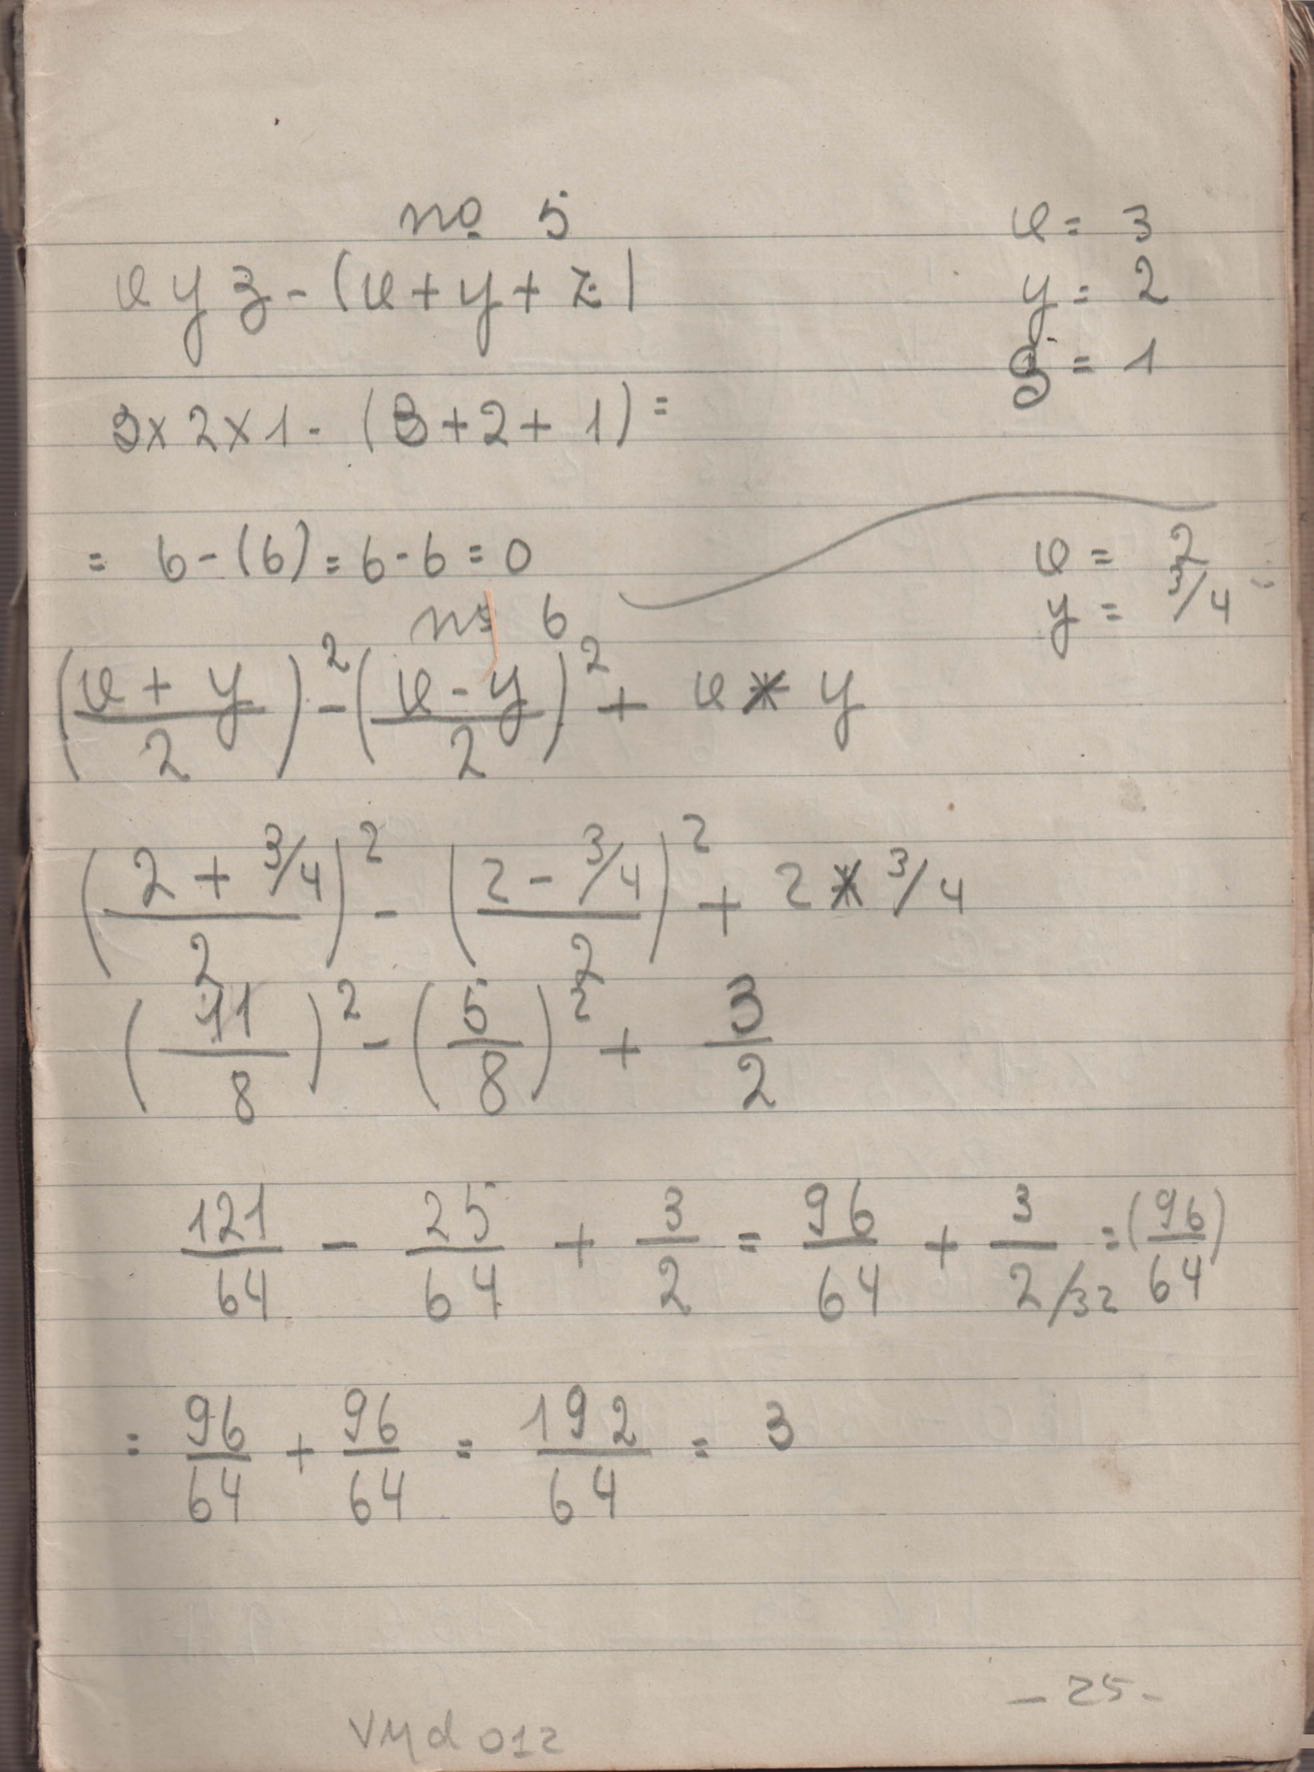 nº 5
x y z - (x + y + z)
x = 3
y = 2
z = 1
3 x 2 x 1 - (3 + 2 + 1) =
= 6 - (6) = 6 - 6 = 0
x = 2
y = 3/4
nº 6
(x + y / 2)² - (x - y / 2)² + x * y
(2 + 3/4 / 2)² - (2 - 3/4 / 2)² + 2 * 3/4
(11/8)² - (5/8)² + 3/2
121/64 - 25/64 + 3/2 = 96/64 + 3/2 /32 = (96/64)
= 96/64 + 96/64 = 192/64 = 3
- 25 -
VMd 012